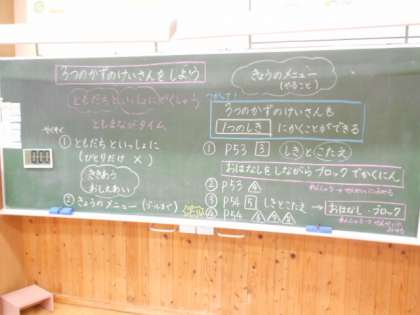 3つのかずのけいさんをしよう
ともだちといっしょにがくしゅう
ともまなびタイム
① ともだちといっしょに
(ひとりだけ ×)
ききあう
おしえあい
② きょうのメニュー
00:00
きょうのメニュー
(やること)
3つのかずのけいさんも
1つのしき にかくことができる
① P53 3 しきとこたえ
おはなしをしながらブロックでかくにん
② P53
③ P54 5 しきとこたえ → おはなし・ブロック
④ P54